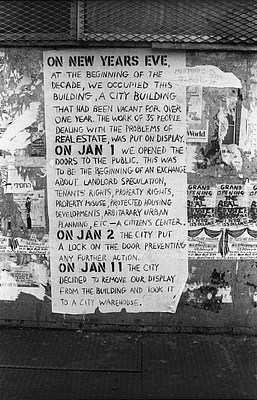 ON NEW YEARS EVE,
AT THE BEGINNING OF THE
DECADE, WE OCCUPIED THIS
BUILDING, A CITY BUILDING
THAT HAD BEEN VACANT FOR OVER
ONE YEAR. THE WORK OF 35 PEOPLE
DEALING WITH THE PROBLEMS OF
REAL ESTATE, WAS PUT ON DISPLAY.
ON JAN 1 WE OPENED THE
DOORS TO THE PUBLIC. THIS WAS
TO BE THE BEGINNING OF AN EXCHANGE
ABOUT LANDLORD SPECULATION,
TENANTS RIGHTS, PROPERTY RIGHTS,
PROPERTY MISUSE, PROTECTED HOUSING
DEVELOPMENTS, ARBITARARY URBAN
PLANNING, ETC — A CITIZENS CENTER.
ON JAN 2 THE CITY PUT
A LOCK ON THE DOOR PREVENTING
ANY FURTHER ACTION.
ON JAN 11 THE CITY
DECIDED TO REMOVE OUR DISPLAY
FROM THE BUILDING AND TOOK IT
TO A CITY WAREHOUSE.
World
GRAND OPENING
THE REAL ESTATE
GRAND OPENING
THE REAL ESTATE